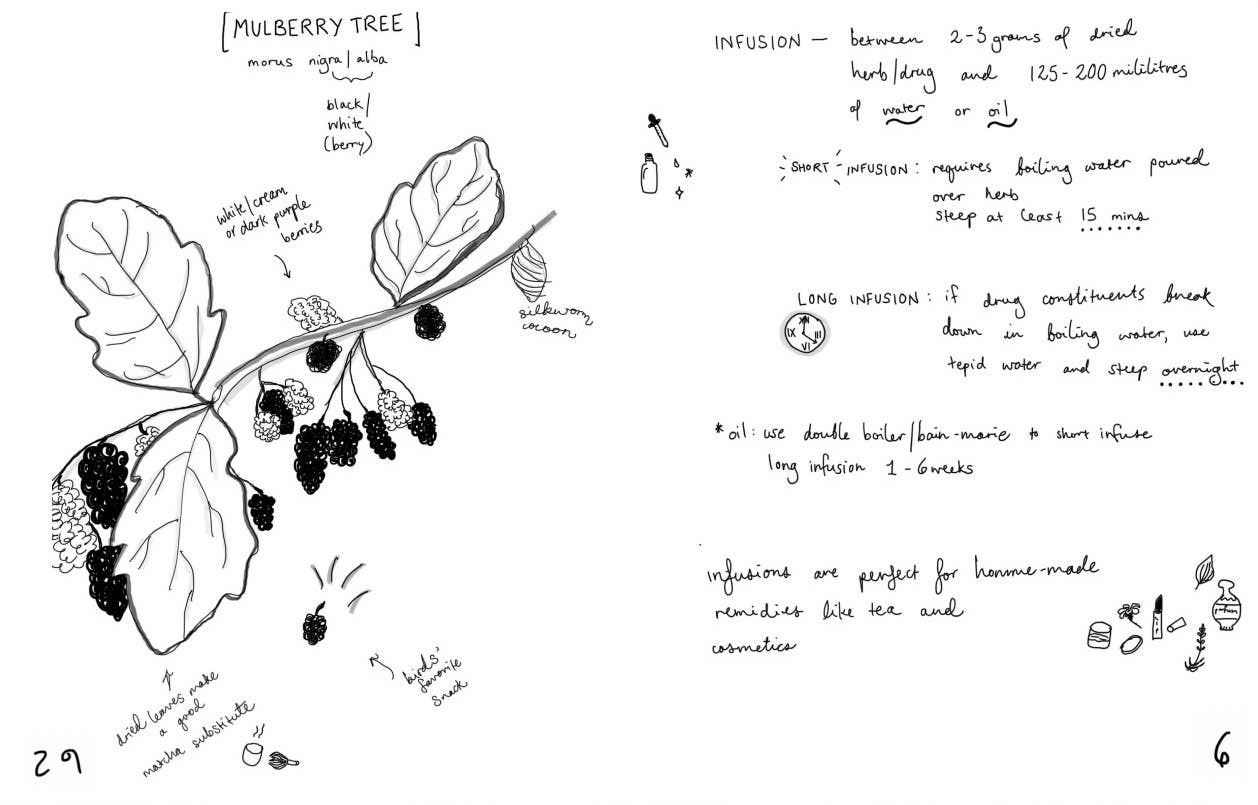 [MULBERRY TREE]
morus nigra/alba
black/
white
(berry)
white/cream
or dark purple
berries
silkworm
cocoon
birds'
favorite
snack
dried leaves make
a good
matcha substitute
29
INFUSION — between 2-3 grams of dried
herb/drug and 125-200 mililitres
of water or oil
SHORT INFUSION: requires boiling water poured
over herb
steep at least 15 mins
LONG INFUSION: if drug constituents break
down in boiling water, use
tepid water and steep overnight
XII
III
VI
IX
*oil: use double boiler/bain-marie to short infuse
long infusion 1-6 weeks
infusions are perfect for homme-made
remidies like tea and
cosmetics
6